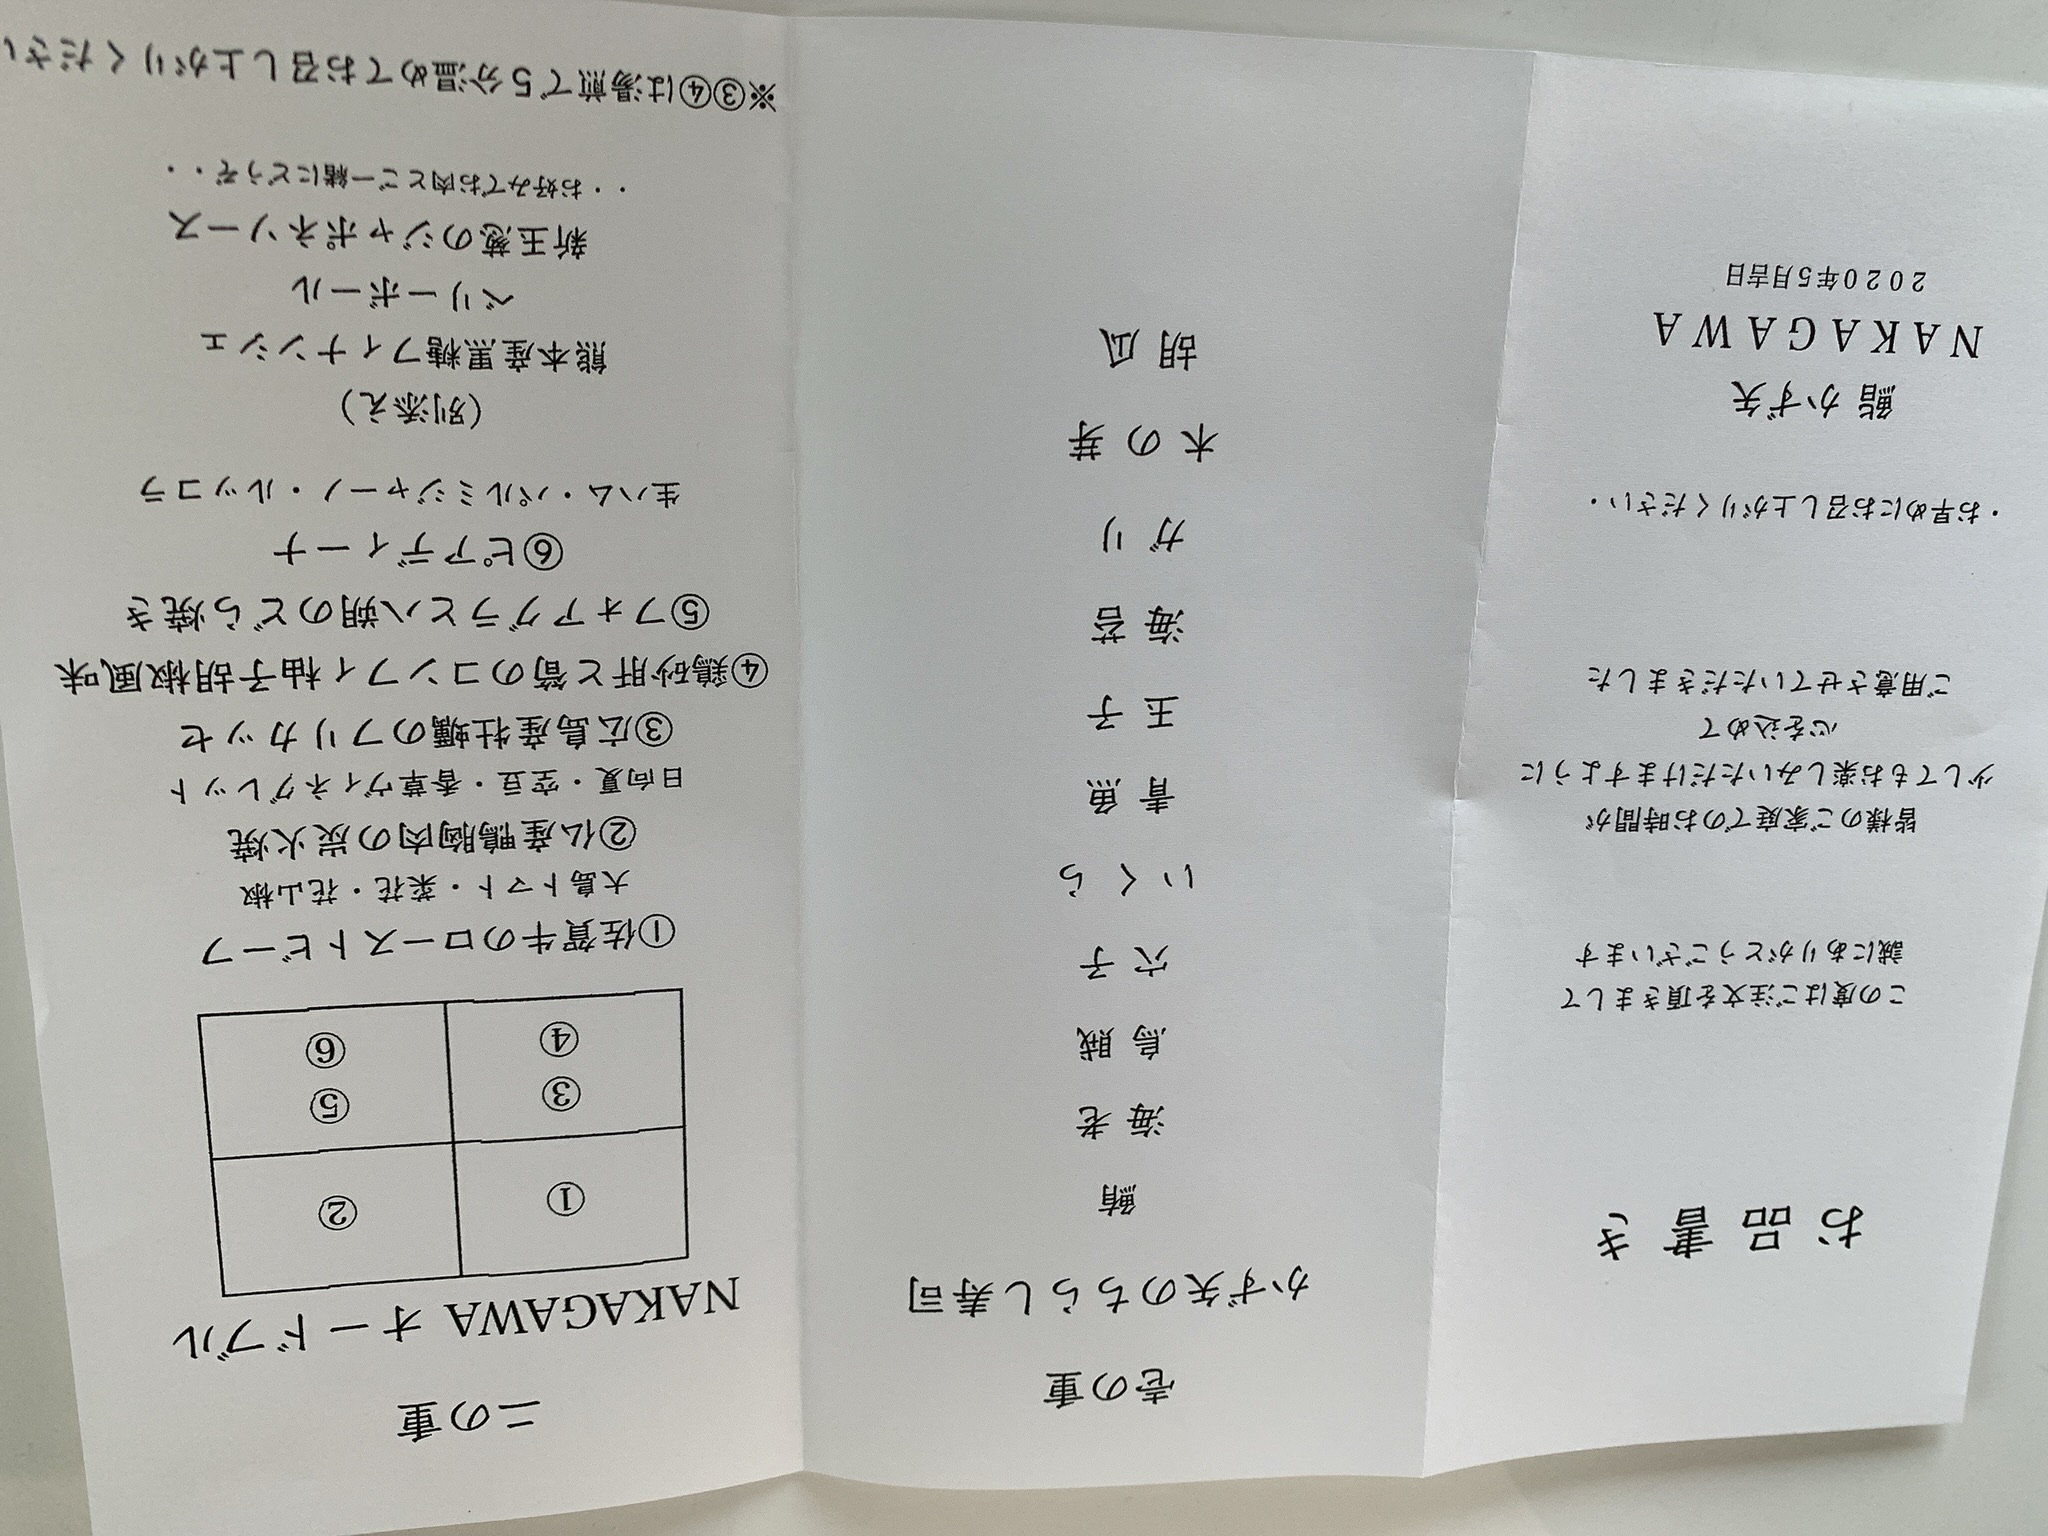 お品書き
この度はご注文を頂きまして
誠にありがとうございます
皆様のご家庭でのお時間が
少しでもお楽しみいただけますように
心を込めて
ご用意させていただきました
・お早めにお召し上がりください・
鮨かず矢
NAKAGAWA
2020年5月吉日
壱の重
かず矢のちらし寿司
鮪
海老
烏賊
穴子
いくら
青魚
玉子
海苔
ガリ
木の芽
胡瓜
二の重
NAKAGAWA オードブル
① ②
③ ⑤
④ ⑥
①佐賀牛のローストビーフ
大島トマト・菜花・花山椒
②仏産鴨胸肉の炭火焼
日向夏・空豆・香草ヴィネグレット
③広島産牡蠣のフリカッセ
④鶏砂肝と筍のコンフィ柚子胡椒風味
⑤フォアグラと八朔のどら焼き
⑥ピアディーナ
生ハム・パルミジャーノ・ルッコラ
(別添え)
熊本産黒糖フィナンシェ
ベリーボール
新玉葱のジャポネソース
・・お好みでお肉とご一緒にどうぞ・・
※③④は湯煎で5分温めてお召し上がりください